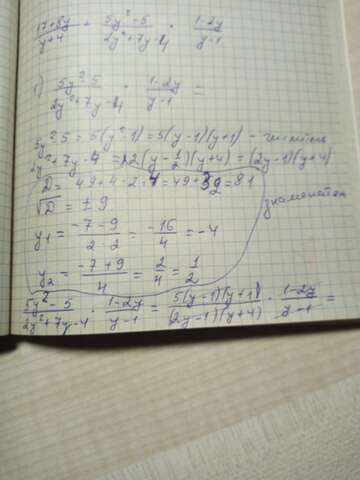 17+8y/y+4 + 5y²-5/2y²+7y-4 · 1-2y/y-1
1) 5y²-5/2y²+7y-4 · 1-2y/y-1 =
5y²-5 = 5(y²-1) = 5(y-1)(y+1) - числитель
2y²+7y-4 = 2(y-1/2)(y+4) = (2y-1)(y+4)
D = 49+4·2·4 = 49+32 = 81
√D = ±9
знаменатель
y₁ = -7-9/2·2 = -16/4 = -4
y₂ = -7+9/4 = 2/4 = 1/2
5y²-5/2y²+7y-4 · 1-2y/y-1 = 5(y-1)(y+1)/(2y-1)(y+4) · 1-2y/y-1 =